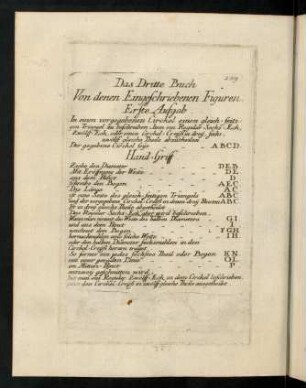 289
Das Dritte Buch
Von denen Eingeschriebenen Figuren
Erste Aufgab
In einen vorgegebenen Circkel einen gleich-seiti-
gen Triangel zu beschreiben, dem ein Regular Sechs-Eck,
Zwölff-Eck, oder einen Circkel-Creiß in drey, sechs,
zwölff gleiche Theile abzutheilen
Der gegebene Circkel seye A.B.C.D.
Hand-Griff
Ziehe den Diameter D.E.B.
Mit Eröffnung der Weite D.E.
aus dem Punct D
Schreibe den Bogen A.E.C.
Die Länge A.C.
ist eine Seite des gleich-seitigen Triangels A.C.
und der vorgegebene Circkel-Creiß in denen drey Puncten A.B.C.
ist in drey gleiche Theile abgetheilet
Das Regular Sechs-Eck aber wird beschrieben
Wann man nimmt die Weite des halben Diameters G.I.
und aus dem Punct I
zeichnet den Bogen F.G.H.
I.H.
oder den halben Diameter sechsmahlen in dem
Circkel-Creiß herum traget
So ferne ein jedes sechstes Theil oder Bogen K.N.
mit einer geraden Linie O.L.
im Mittel-Punct P
entzwey geschnitten wird
Regular Zwölff-Eck, in dem Circkel beschrieben
oder der Circkel-Creiß in zwölff gleiche Theile ausgetheilet.